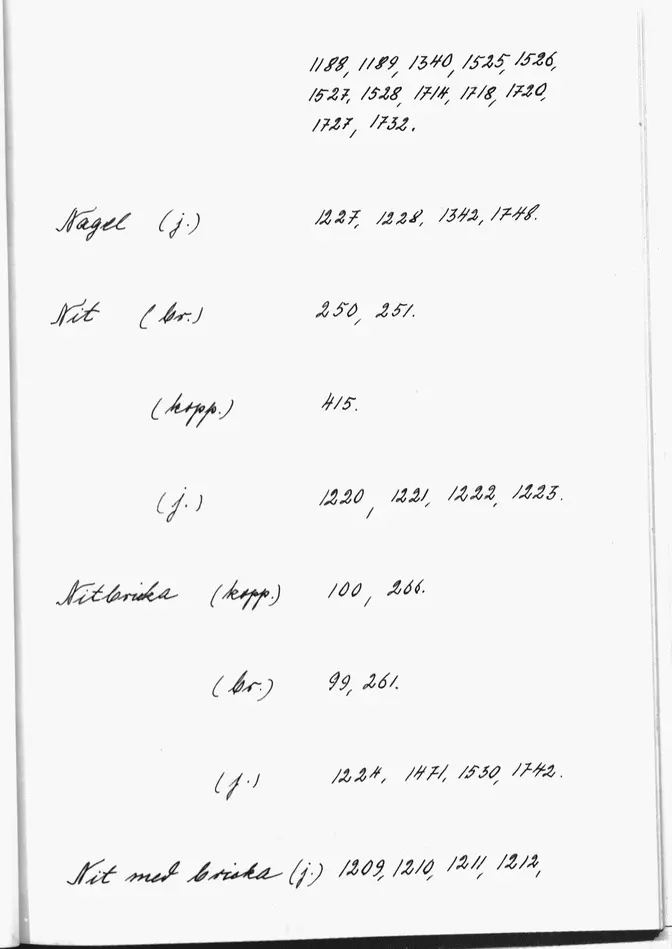 1188, 1189, 1340, 1525, 1526,
1527, 1528, 1714, 1718, 1720,
1727, 1732.
Nagel (j.) 1227, 1228, 1342, 1748.
Nit (br.) 250, 251.
(kopp.) 415.
(j.) 1220, 1221, 1222, 1223.
Nitbricka (kopp.) 100, 266.
(br.) 99, 261.
(j.) 1224, 1471, 1530, 1742.
Nit med bricka (j.) 1209, 1210, 1211, 1212,